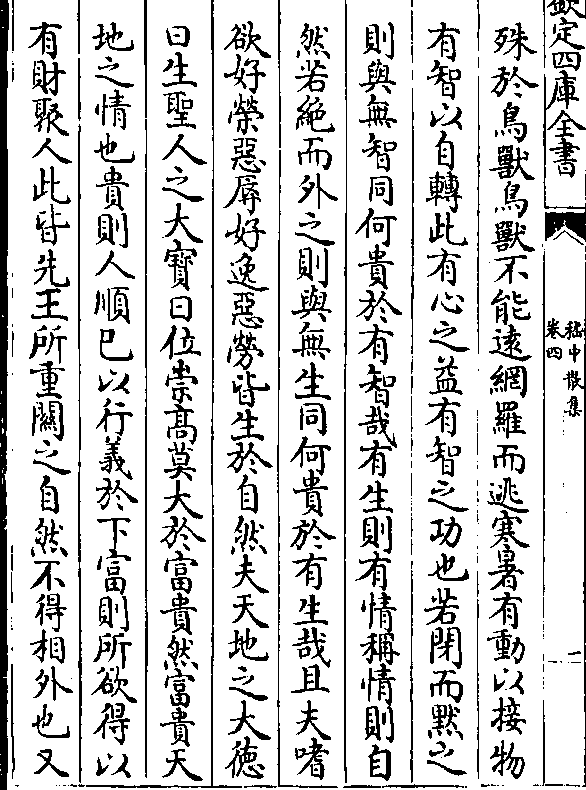 欽定四庫全書
嵇中散集
卷四
一
殊於鳥獸鳥獸不能逺網羅而逃寒暑有動以接物
有智以自輔此有心之益有智之功也若閉而黙之
則與無智同何貴於有智哉有生則有情稱情則自
然若絶而外之則與無生同何貴於有生哉且夫嗜
欲好榮惡辱好逸惡勞皆生於自然夫天地之大徳
曰生聖人之大寳曰位崇髙莫大於富貴然富貴天
地之情也貴則人順已以行義於下富則所欲得以
有財聚人此皆先王所重闗之自然不得相外也又